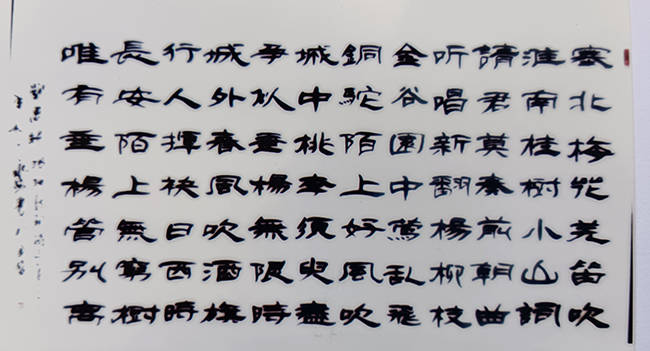 塞北梅花羌笛吹
淮南桂樹小山詞
請君莫奏前朝曲
听唱新翻楊柳枝
金谷園中鶯乱飛
銅駝陌上好風吹
城中桃李須臾盡
爭似垂楊無限時
城外春風吹酒旗
行人揮袂日西時
長安陌上無窮樹
唯有垂楊管別离